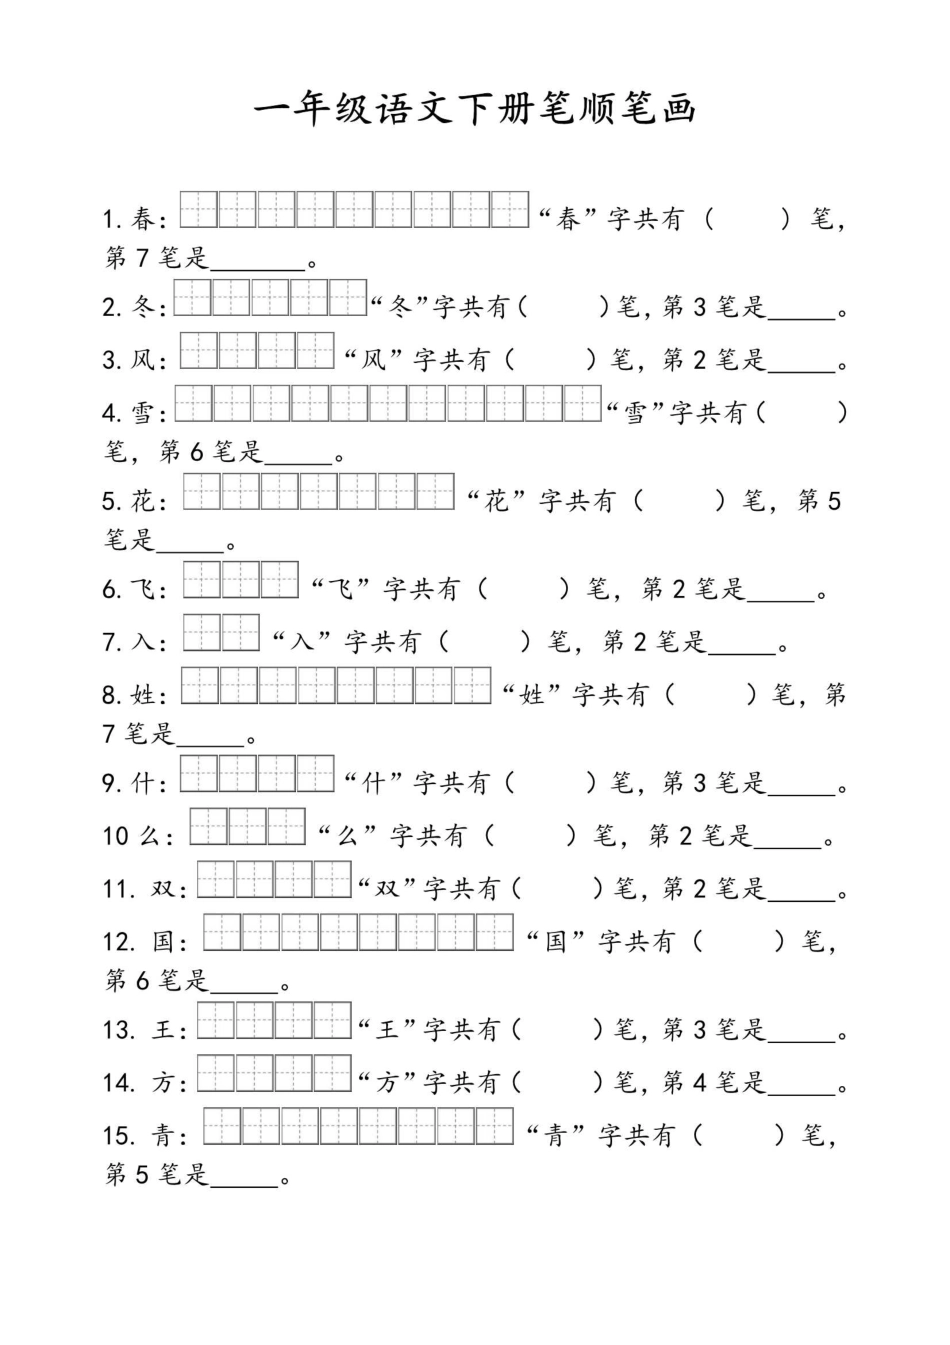 一年级语文下册笔顺笔画
1.春：“春”字共有（ ）笔，
第7笔是_______。
2.冬：“冬”字共有（ ）笔，第3笔是_____。
3.风：“风”字共有（ ）笔，第2笔是_____。
4.雪：“雪”字共有（ ）
笔，第6笔是_____。
5.花：“花”字共有（ ）笔，第5
笔是_____。
6.飞：“飞”字共有（ ）笔，第2笔是_____。
7.入：“入”字共有（ ）笔，第2笔是_____。
8.姓：“姓”字共有（ ）笔，第
7笔是_____。
9.什：“什”字共有（ ）笔，第3笔是_____。
10么：“么”字共有（ ）笔，第2笔是_____。
11. 双：“双”字共有（ ）笔，第2笔是_____。
12. 国：“国”字共有（ ）笔，
第6笔是_____。
13. 王：“王”字共有（ ）笔，第3笔是_____。
14. 方：“方”字共有（ ）笔，第4笔是_____。
15. 青：“青”字共有（ ）笔，
第5笔是_____。